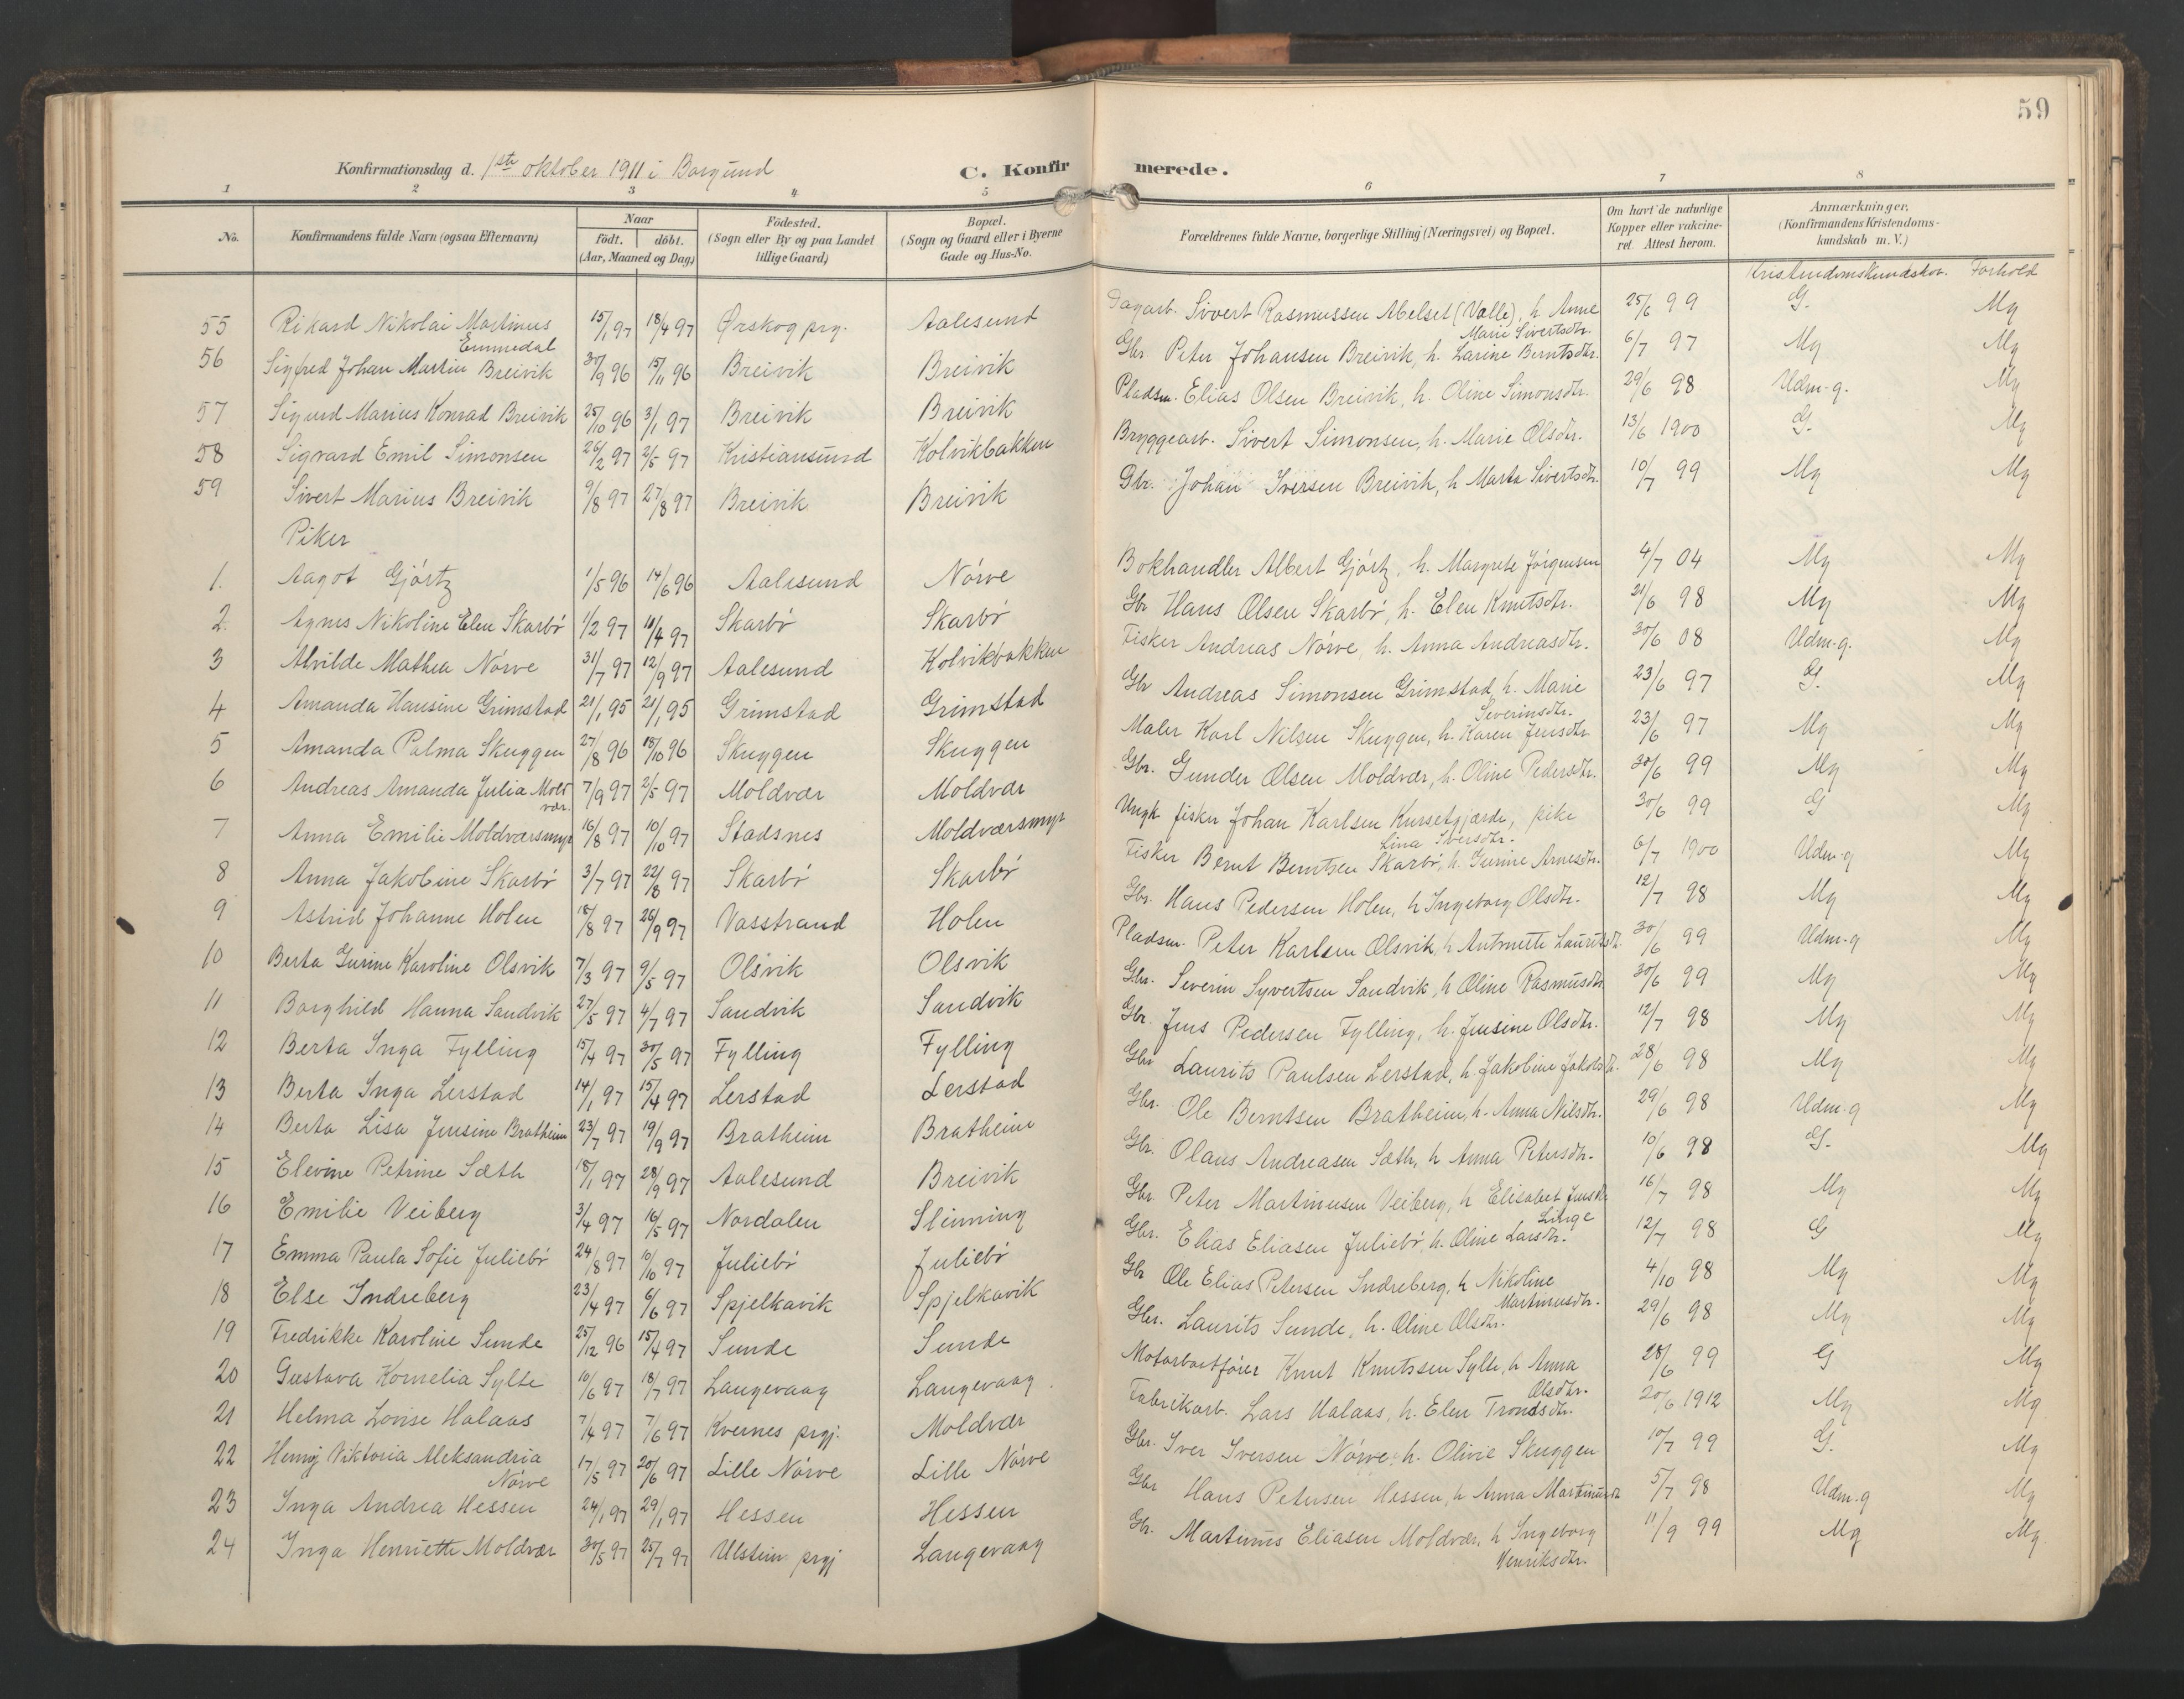 59
Konfirmationsdag d. 1ste oktober 1911 i Borgund C. Konfirmerede.
1 2 3 4 5 6 7 8
No. Konfirmandens fulde Navn (ogsaa Efternavn) Naar födt. döbt. (Aar, Maaned og Dag) Födested. (Sogn eller By og paa Landet tillige Gaard) Bopæl. (Sogn og Gaard eller i Byerne Gade og Hus-No. Forældrenes fulde Navne, borgerlige Stilling (Næringsvei) og Bopæl. Om havt de naturlige Kopper eller vakcineret. Attest herom. Anmærkninger. (Konfirmandens Kristendomskundskab m. V.)
Kristendomskundskab. Forhold
55 Rikard Nikolai Martinus Emmedal 15/1 97 18/4 97 Ørskog prg. Aalesund Dagarb. Sivert Rasmussen Abelset (Valle), h. Anne Marie Sivertsdtr. 25/6 99 G. Mg
56 Sigfred Johan Martin Breivik 30/9 96 15/11 96 Breivik Breivik Gbr Peter Johansen Breivik, h. Larine Berntsdtr. 6/7 97 Mg Mg
57 Sigurd Marius Konrad Breivik 25/10 96 3/1 97 Breivik Breivik Pladsm. Elias Olsen Breivik, h. Oline Simonsdtr. 29/6 98 Udm.g. Mg
58 Sigvard Emil Simonsen 26/2 97 2/5 97 Kristiansund Kolvikbakken Bryggearb. Sivert Simonsen, h. Marie Olsdtr. 13/6 1900 G. Mg
59 Sivert Marius Breivik 9/8 97 27/8 97 Breivik Breivik Gbr. Johan Iversen Breivik, h Marta Sivertsdtr. 10/7 99 Mg Mg
Piker
1. Aagot Gjörtz 1/5 96 14/6 96 Aalesund Nörve Bokhandler Albert Gjörtz, h. Margrete Jörgensen 4/7 04 Mg Mg
2. Agnes Nikoline Elen Skarbö 1/2 97 18/4 97 Skarbö Skarbö Gbr Hans Olsen Skarbö, h. Elen Knutsdtr. 21/6 98 Mg Mg
3 Alvilde Mathea Nörve 31/7 97 12/9 97 Aalesund Kolvikbakken Fisker Andreas Nörve, h. Anna Andreasdtr. 30/6 08 Udm.g. Mg
4 Amanda Hansine Grimstad 21/1 95 21/1 95 Grimstad Grimstad Gbr Andreas Simonsen Grimstad, h. Marie Severinsdtr. 23/6 97 G. Mg
5 Amanda Palma Skuggen 27/8 96 18/10 96 Skuggen Skuggen Maler Karl Nilsen Skuggen, h. Karen Jensdtr 23/6 97 Mg Mg
6 Andreas Amanda Julia Moldvær. 7/9 97 2/5 97 Moldvær Moldvær Gbr. Gunder Olsen Moldvær, h. Oline Pedersdtr. 30/6 99 Mg Mg
7 Anna Emilie Moldværsmyr 16/8 97 10/10 97 Stadsnes Moldværsmyr Ungk fisker Johan Karlsen Kursetgjærde, pike Lina Iversdtr. 30/6 99 G Mg
8 Anna Jakobine Skarbö 3/7 97 22/8 97 Skarbö Skarbö Fisker Bernt Berntsen Skarbö, h. Gurine Arnesdtr. 6/7 1900 Udm.g Mg
9 Astrid Johanne Holen 18/8 97 26/9 97 Vasstrand Holen Gbr. Hans Pedersen Holen, h Ingeborg Olsdtr. 12/7 98 Mg Mg
10 Berta Gurine Karoline Olsvik 7/3 97 9/5 97 Olsvik Olsvik Pladsm. Peter Karlsen Olsvik, h Antonette Lauritsdt. 30/6 99 Udm.g Mg
11 Borghild Hanna Sandvik 27/5 97 4/7 97 Sandvik Sandvik Gbr. Severin Syvertsen Sandvik, h Oline Rasmusdtr 30/6 99 Mg Mg
12 Berta Inga Fylling 15/4 97 30/5 97 Fylling Fylling Gbr. Jens Pedersen Fylling, h. Jensine Olsdtr. 12/7 98 Mg Mg
13 Berta Inga Lerstad 14/1 97 15/4 97 Lerstad Lerstad Gbr Laurits Paulsen Lerstad, h. Jakobine Jakobsdt. 28/6 98 Mg Mg
14 Berta Lisa Jensine Bratheim 23/7 97 19/9 97 Bratheim Bratheim Gbr. Ole Berntsen Bratheim, h. Anna Nilsdtr. 29/6 98 Udm.g Mg
15 Elevine Petrine Sæth 18/1 97 28/9 97 Aalesund Breivik Gbr. Olaus Andreasen Sæth, h Anna Petersdtr. 10/6 98 G. Mg
16 Emilie Veiberg 3/4 97 16/5 97 Nordalen Slinning Gbr Peter Martinusen Veiberg, h Elisabet Jensdtr Linge 16/7 98 Mg Mg
17 Emma Paula Sofie Juliebö 24/8 97 10/10 97 Juliebö Juliebö Gbr. Elias Eliasen Juliebö, h. Oline Larsdtr. 12/7 98 G Mg
18 Else Indreberg 23/4 97 6/6 97 Spjelkavik Spjelkavik Gbr Ole Elias Petersen Indreberg, h Nikoline Martinusdtr. 4/10 98 Mg Mg
19 Fredrikke Karoline Sunde 25/12 96 15/4 97 Sunde Sunde Gbr. Laurits Sunde, h. Oline Olsdtr. 29/6 98 Mg Mg
20 Gustava Kornelia Sylte 10/6 97 18/7 97 Langevaag Langevaag. Motorbaatförer Knut Knutssen Sylte, h Anna Olsdtr. 28/6 99 G Mg
21 Helma Lovise Halaas 7/4 97 7/6 97 Kvernes prgj. Moldvær Fabrikarb. Lars Halaas, h. Elen Trondsdtr. 20/6 1912 Mg Mg
22 Henny Viktoria Aleksandria Nörve 17/5 97 20/6 97 Lille Nörve Lille Nörve Gbr. Iver Iversen Nörve, h. Olivie Skuggen 10/7 99 G. Mg
23 Inga Andrea Hessen 24/1 97 29/1 97 Hessen Hessen Gbr Hans Petersen Hessen, h Anna Martinusdt 5/7 98 Udm.g Mg
24 Inga Henriette Moldvær 30/5 97 25/7 97 Ulstein prgj Langevaag Gbr. Martinus Eliasen Moldvær, h Ingeborg Henriksdtr. 11/9 99 Mg Mg